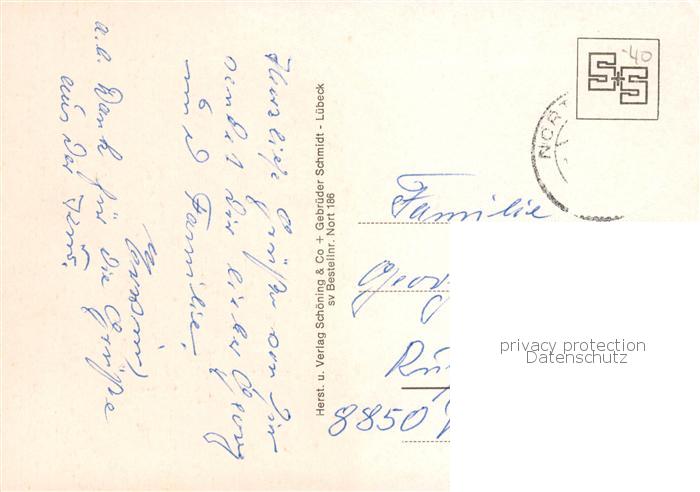 Herzliche Grüße von Dir
lieber Georg
und Familie.
a.b. Dank für die Grüße
aus der
Herst. u. Verlag Schöning & Co + Gebrüder Schmidt - Lübeck
sv Bestellnr. Nort 186
-40
S+S
NORT
Familie
Georg
Rü
8850
privacy protection
Datenschutz